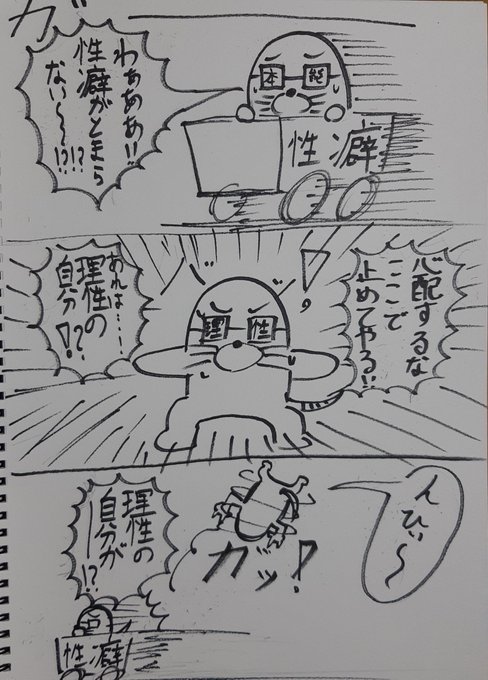 本能
性癖
わぁぁぁ!!
性癖がとまら
ない〜〜!?!?
ガ
心配するな
ここで
止めてやる!!
理性
あれは……
理性の
自分!?
んひぃ〜
ガッ!
理性の
自分が
ー!?
性癖